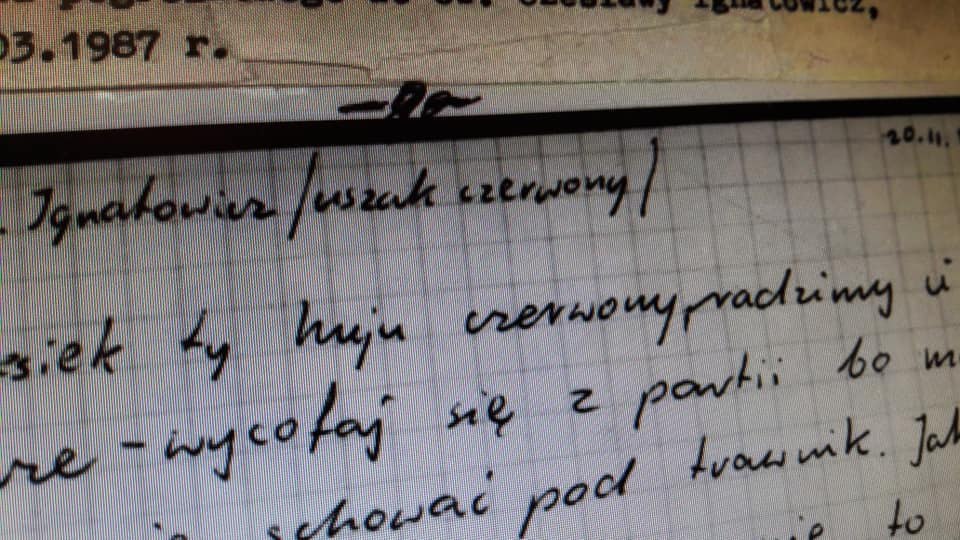 Czesławy Ignatowicz,
03.1987 r.
20.11.
Ignatowicz /uszak czerwony/
siek ty huju czerwony, radzimy ci
re - wycofaj się z partii bo m
schować pod trawnik. Jak
to